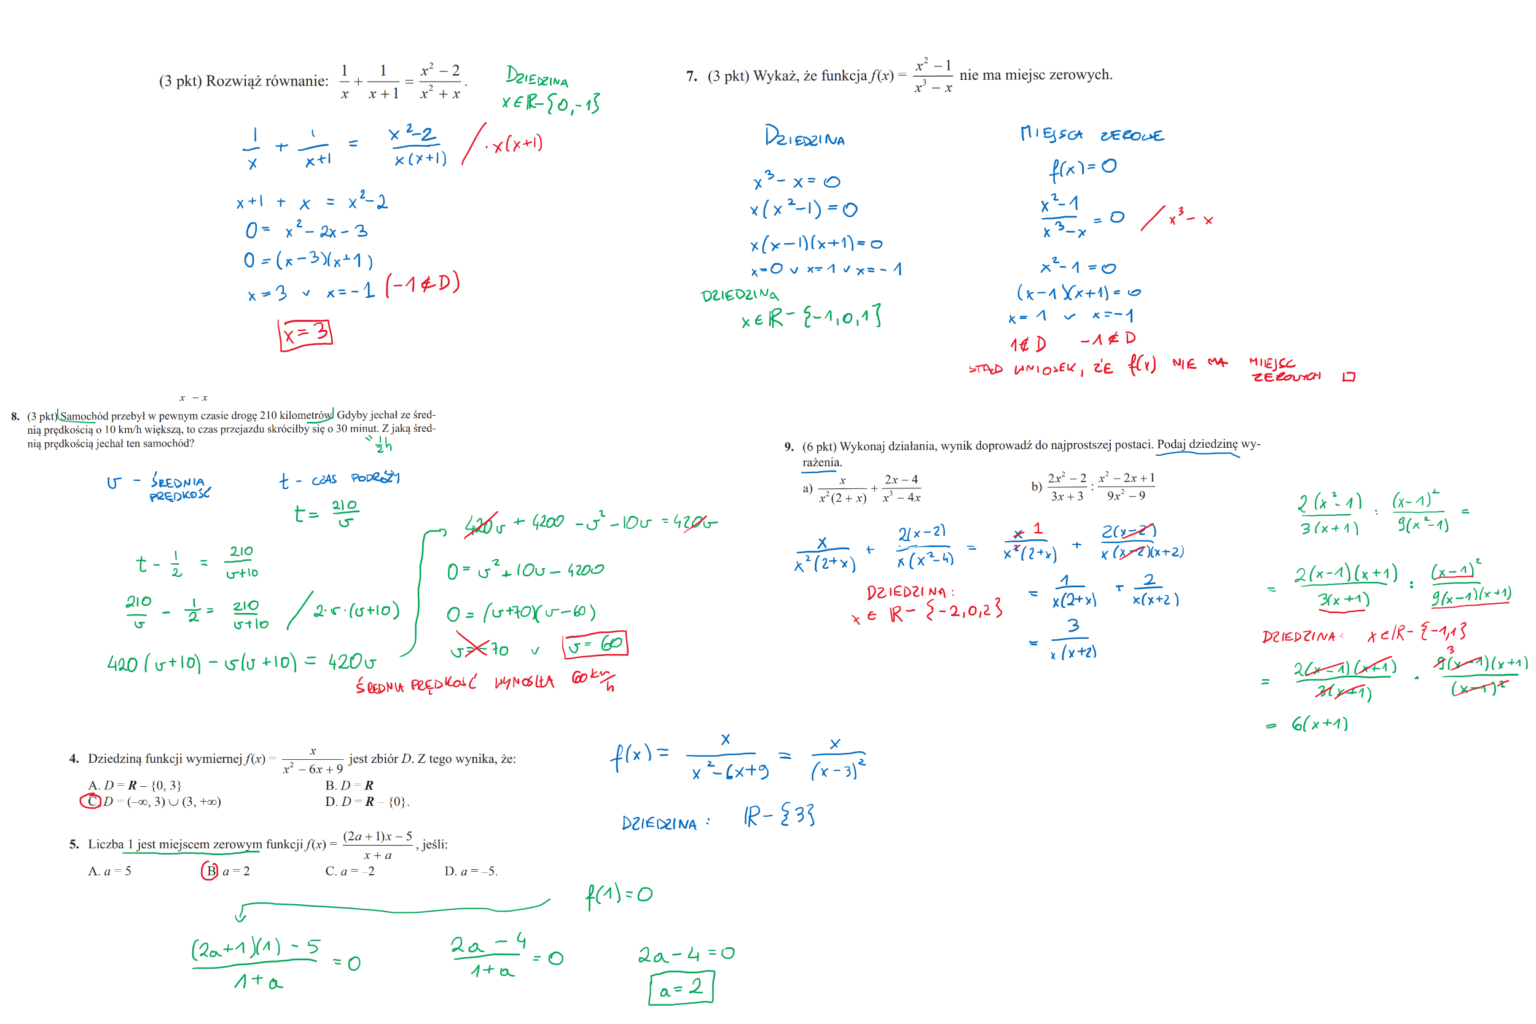 (3 pkt) Rozwiąż równanie: 1/x + 1/(x+1) = (x² − 2)/(x² + x).
DZIEDZINA
x ∈ R−{0,−1}
1/x + 1/(x+1) = (x²−2)/(x(x+1)) / ·x(x+1)
x+1 + x = x²−2
0 = x²−2x−3
0 = (x−3)(x+1)
x=3 ∨ x=−1 (−1∉D)
x=3
7. (3 pkt) Wykaż, że funkcja f(x) = (x² − 1)/(x³ − x) nie ma miejsc zerowych.
DZIEDZINA
x³−x=0
x(x²−1)=0
x(x−1)(x+1)=0
x=0 ∨ x=1 ∨ x=−1
DZIEDZINA
x∈R−{−1,0,1}
MIEJSCA ZEROWE
f(x)=0
(x²−1)/(x³−x) = 0 / x³−x
x²−1=0
(x−1)(x+1)=0
x=1 ∨ x=−1
1∉D −1∉D
STĄD WNIOSEK, ŻE f(x) NIE MA MIEJSC
ZEROWYCH □
x − x
8. (3 pkt) Samochód przebył w pewnym czasie drogę 210 kilometrów. Gdyby jechał ze śred-
nią prędkością o 10 km/h większą, to czas przejazdu skróciłby się o 30 minut. Z jaką śred-
nią prędkością jechał ten samochód?
½h
v − ŚREDNIA
PRĘDKOŚĆ
t − CZAS PODRÓŻY
t = 210/v
t − 1/2 = 210/(v+10)
210/v − 1/2 = 210/(v+10) / 2·v·(v+10)
420(v+10) − v(v+10) = 420v
420v + 4200 − v² − 10v = 420v
0 = v²+10v−4200
0 = (v+70)(v−60)
v=−70 ∨ v=60
ŚREDNIA PRĘDKOŚĆ WYNOSIŁA 60 km/h
9. (6 pkt) Wykonaj działania, wynik doprowadź do najprostszej postaci. Podaj dziedzinę wy-
rażenia.
a) x/(x²(2 + x)) + (2x − 4)/(x³ − 4x)
b) (2x² − 2)/(3x + 3) : (x² − 2x + 1)/(9x² − 9)
x/(x²(2+x)) + 2(x−2)/(x(x²−4)) = x 1/(x²(2+x)) + 2(x−2)/(x(x−2)(x+2))
DZIEDZINA:
x ∈ R−{−2,0,2}
= 1/(x(2+x)) + 2/(x(x+2))
= 3/(x(x+2))
2(x²−1)/(3(x+1)) : (x−1)²/(9(x²−1)) =
= 2(x−1)(x+1)/(3(x+1)) : (x−1)²/(9(x−1)(x+1))
DZIEDZINA: x∈R−{−1,1}
3
= 2(x−1)(x+1)/(3(x+1)) · 9(x−1)(x+1)/(x−1)²
= 6(x+1)
4. Dziedziną funkcji wymiernej f(x) = x/(x² − 6x + 9) jest zbiór D. Z tego wynika, że:
A. D = R − {0, 3} B. D = R
C. D = (−∞, 3) ∪ (3, +∞) D. D = R − {0}.
f(x) = x/(x²−6x+9) = x/(x−3)²
DZIEDZINA: R−{3}
5. Liczba 1 jest miejscem zerowym funkcji f(x) = ((2a + 1)x − 5)/(x + a), jeśli:
A. a = 5 B. a = 2 C. a = −2 D. a = −5.
f(1)=0
((2a+1)(1) − 5)/(1+a) = 0
(2a − 4)/(1+a) = 0
2a−4=0
a=2